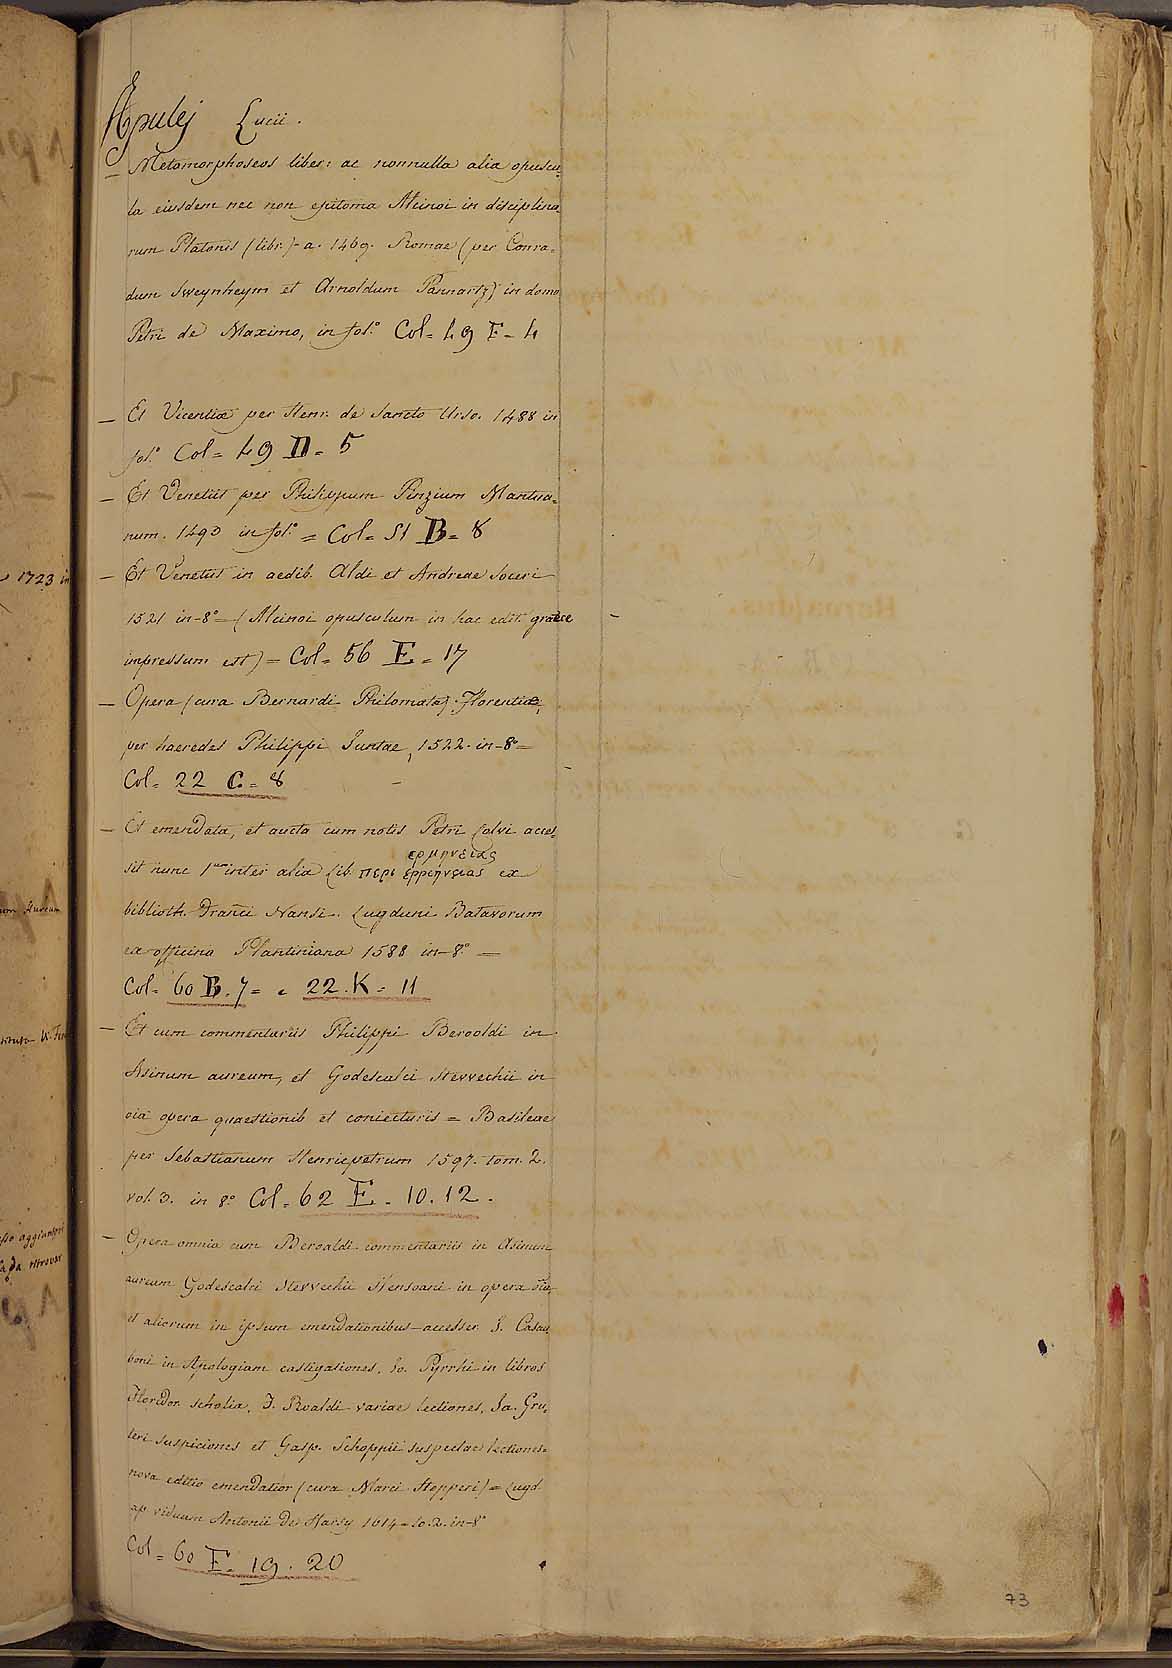 Apulej Lucii.
– Metamorphoseos liber: ac nonnulla alia opuscu-
la eiusdem nec non epitoma Alcinoi in disciplina
rum Platonis (libr.) - a. 1469. Romae (per Conra-
dum Sweynheym et Arnoldum Pannartz) in domo
Petri de Maximo, in fol.º Col= 49 F - 4
– Et Vicentiæ per Henr. de Sancto Urso. 1488 in
fol.º Col= 49 D = 5
– Et Venetiis per Philippum Pinzium Mantua-
num. 1493 in fol.º = Col= 51 B = 8
– Et Venetiis in aedib. Aldi et Andreae Soceri
1521 in-8º = (Alcinoi opusculum in hac edit. graece
impressum est) = Col= 56 E = 17
– Opera (cura Bernardi Philomatis) Florentiæ,
per haeredes Philippi Juntae, 1522. in-8º =
Col= 22 C. = 8
– Et emendata, et aucta cum notis Petri Colvi acces-
ερμηνείας
sit nunc 1um inter alia Lib. περι ερμηνειας ex
biblioth. Franci Nansi. Lugduni Batavorum
ex officina Plantiniana 1588 in-8º =
Col= 60 B. 7 = . 22. K = 11
– Et cum commentariis Philippi Beroaldi in
Asinum aureum, et Godescalci Stevvechii in
oia opera quaestionib et coniecturis = Basileae
per Sebastianum Henricpetrum 1597. tom. 2.
vol. 3. in 8º Col= 62 E - 10. 12.
– Opera omnia cum Beroaldi commentariis in Asinum
aureum Godescalci Stevvechii Heusdani in opera oia
et aliorum in ipsum emendationibus - accesser. I. Casau
boni in Apologiam castigationes, Io. Pyrrhi in libros
Floridor. scholia, I. Roaldi variae lectiones, Ia. Gru-
teri suspiciones et Gasp. Schoppii suspectae lectiones.
nova editio emendatior (cura Marci Hopperi) = Lugd
ap. viduam Antonii de Harsy 1614 = to. 2. in-8º
Col= 60 F. 19. 20
73
1723 in